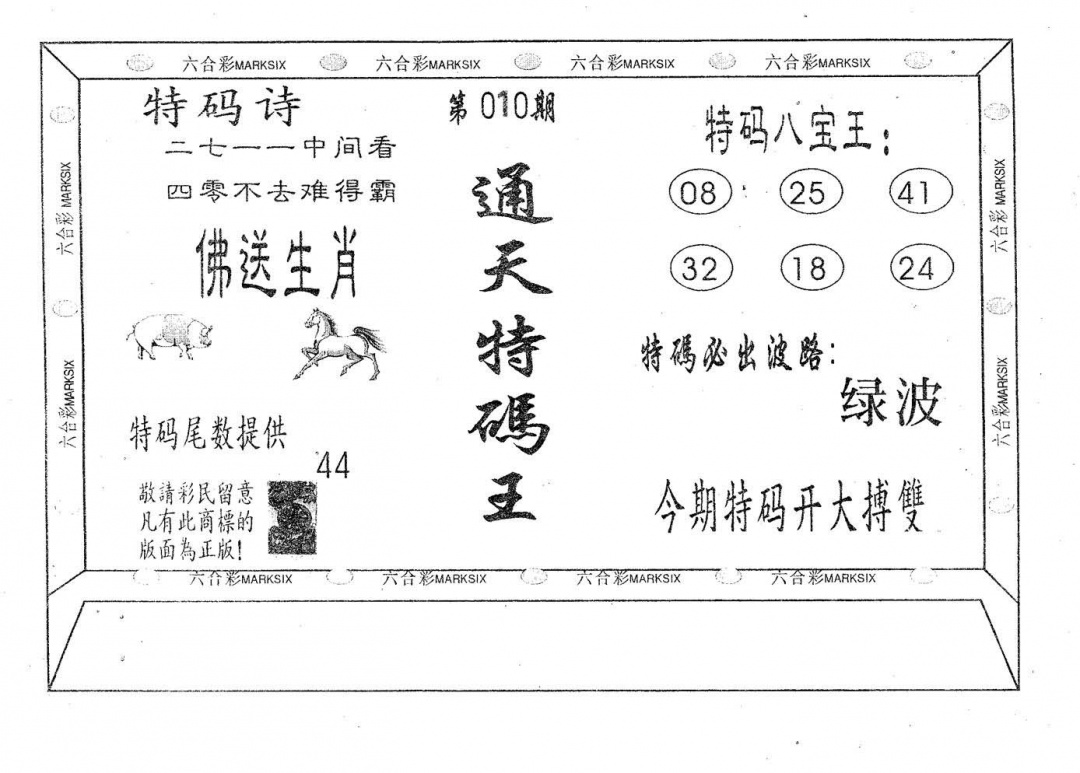 六合彩MARKSIX 六合彩MARKSIX 六合彩MARKSIX 六合彩MARKSIX
特码诗
二七一一中间看
四零不去难得霸
佛送生肖
特码尾数提供
44
敬請彩民留意
凡有此商標的
版面為正版!
第010期
通天特碼王
特码八宝王:
08 25 41
32 18 24
特碼必出波路:
绿波
今期特码开大搏雙
六合彩MARKSIX
六合彩MARKSIX
六合彩MARKSIX
六合彩MARKSIX
六合彩MARKSIX 六合彩MARKSIX 六合彩MARKSIX 六合彩MARKSIX